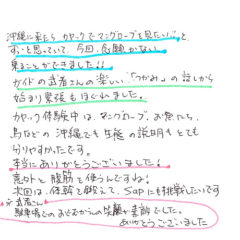 沖縄に来たらカヤックでマングローブを見たい！と
ずっと思っていて、今回、念願かない
来ることができました！！
ガイドの武者さんの楽しい「つかみ」の話しから
始まり緊張もほぐれました。
カヤック体験中は、マングローブ、お魚たち、
鳥などの沖縄でも生態の説明もとても
分りやすかったです。
本当にありがとうございました！
意外と腹筋を使うんですね！
次回は、体幹を鍛えて、SUPにも挑戦したいです
武者さん
駐車場での おむかえの笑顔が素敵でした。
ありがとうございました